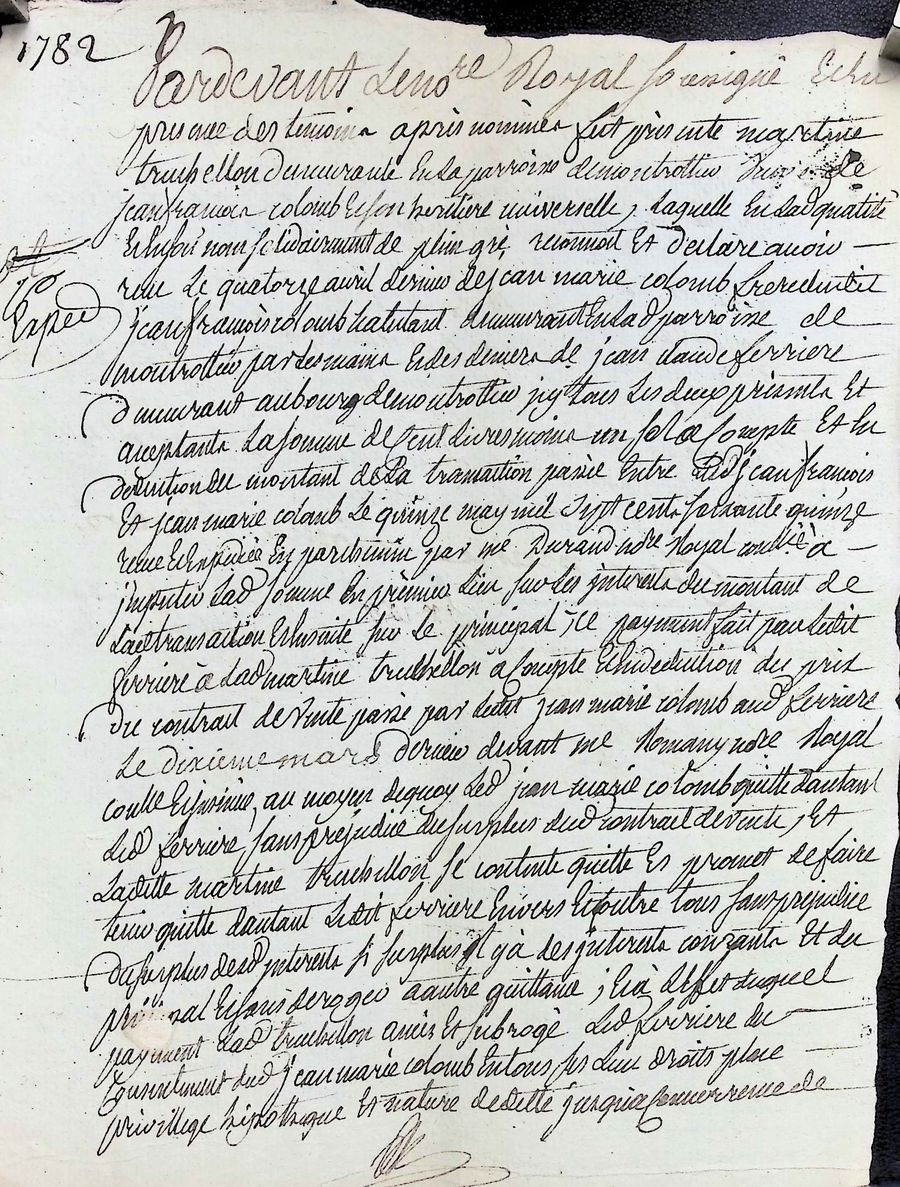 1782
Pardevant Le no.re Royal soussigné Et En
presence des temoins apres nommés fut presente martine
truchellon demeurante En La parroisse de montrottier veuve de
jean francois colomb Et son heritiere universelle, Laquelle En Lad qualité
Et En son nom solidairement de plein gré, reconnoit Et declare avoir
recu Le quatorze avril dernier de jean marie colomb frere dudit
jean françois colomb habitant demeurant En Lad parroisse de
montrottier par Les mains Et des deniers de jean claude ferriere
demeurant au bourg de montrottier icy tous Les deux presents Et
acceptants La somme de Cent Livres moins un sol a Compte Et En
deduction du montant de La transaction passée Entre Led jean francois
Et jean marie colomb Le quinze may mil sept cents soixante quinze
recue Et Expediée En parchemin par me Durand no.re Royal à
imputer Lad somme En premier Lieu sur Les jnterets du montant de
Lad transaction Et Ensuite sur Le principal, ce payment fait par Ledit
ferriere à Lad martine truchellon a Compte Et En deduction du prix
du contrat de vente passé par Ledit jean marie colomb aud ferriere
Le dixieme mars dernier devant me Romany no.re Royal
au moyen de quoy Led jean marie colomb quitte d'autant
Led ferriere, sans prejudice du surplus dud contrat de vente, Et
Laditte martine truchellon se contente quitte Et promet de faire
tenir quitte d'autant Ledit ferriere Envers Et contre tous sans prejudice
du surplus desd jnterets si surplus il y a des jnterets courants Et du
principal Et sans deroger a autre quittance; Et à L'effet duquel
payment Lad truchellon a mis Et subrogé Led ferriere du
Consentement dud jean marie colomb En tous ses Lieu droits place
privillege hipotheque Et nature de dette jusqu'a Concurrence de
Exped